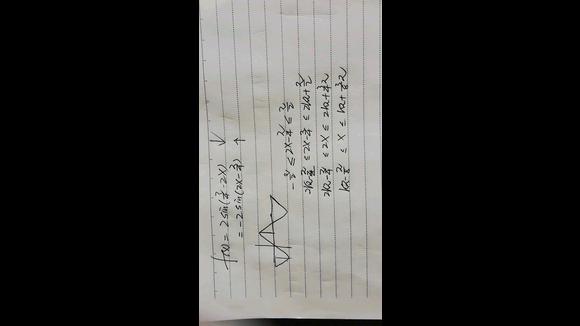 f(x) = 2sin(π/4 - 2x) ↓
= -2sin(2x - π/4) ↑
-π/2 ≤ 2x - π/4 ≤ π/2
2kπ - π/2 ≤ 2x - π/4 ≤ 2kπ + π/2
2kπ - π/4 ≤ 2x ≤ 2kπ + 3/4π
kπ - π/8 ≤ x ≤ kπ + 3/8π